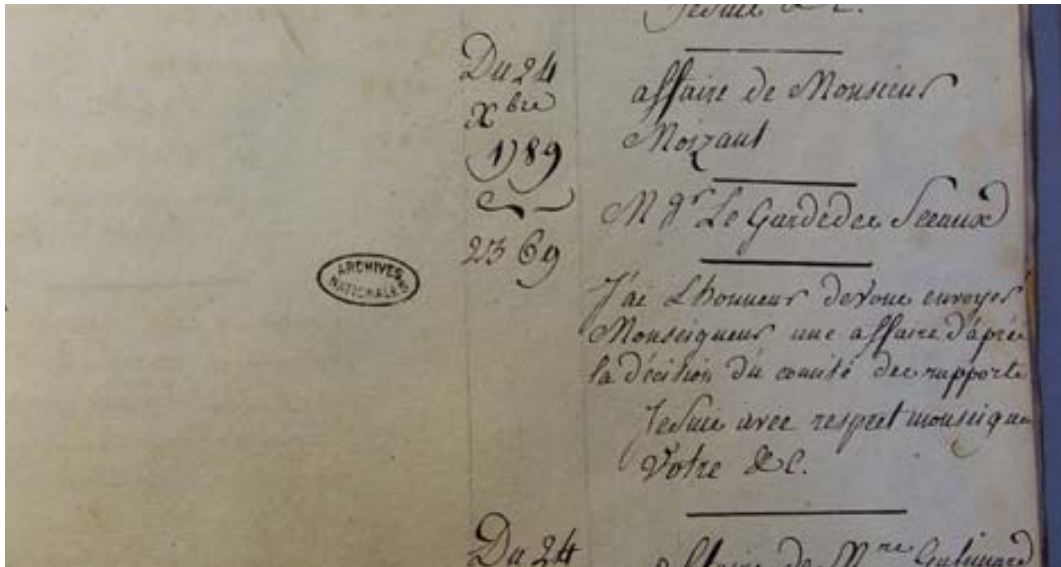 Jesuis &c.
Du 24
Xbre
1789
2369
ARCHIVES
NATIONALES
affaire de Monsieur
Moizant
Mgr Le Garde des Sceaux
J'ai L'honneur de Vous envoyer
Monseigneur une affaire d'après
la décision du comité des rapports
Jesuis avec respect monseigneur
Votre &c.
Du 24
affaire de Mre